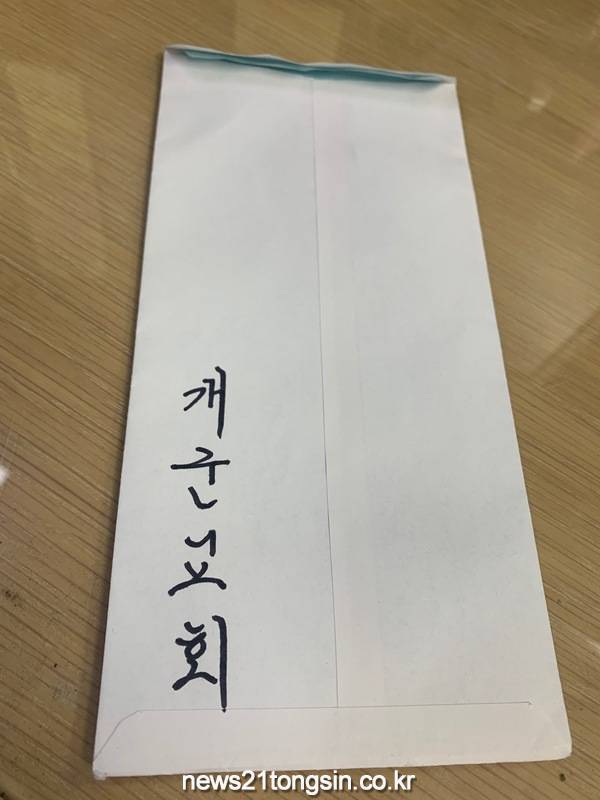 개군노회
news21tongsin.co.kr